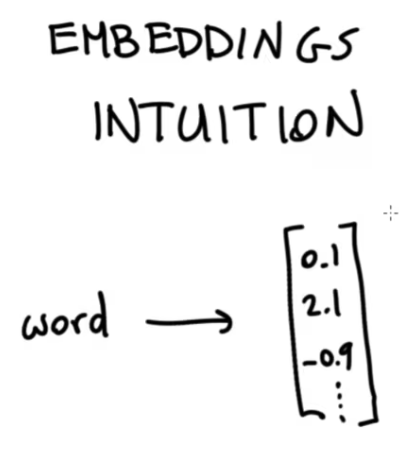 EMBEDDINGS
INTUITION
word → [0.1
2.1
-0.9
⋮]